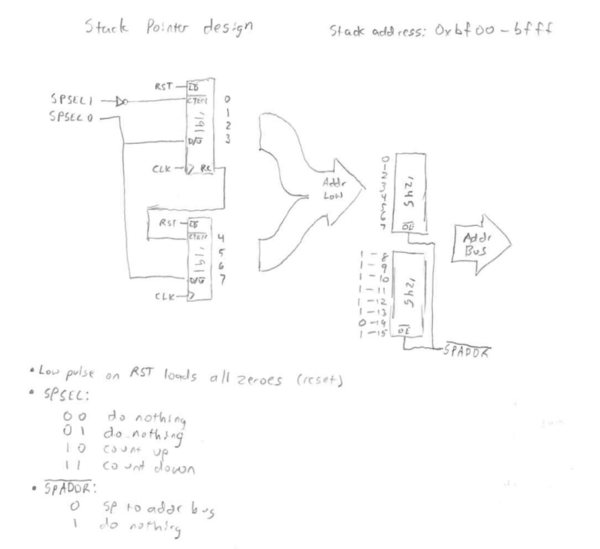 Stack Pointer design
Stack address: 0xbf00-bfff
RST
LD
SPSEL1
CTEN
SPSEL0
'191
D/U
CLK
RC
0
1
2
3
RST
LD
CTEN
'191
D/U
CLK
4
5
6
7
Addr
Low
0
1
2
3
4
5
6
7
'245
OE
1-8
1-9
1-10
1-11
1-12
1-13
0-14
1-15
'245
OE
Addr
Bus
SPADDR
• Low pulse on RST loads all zeroes (reset)
• SPSEL:
00 do nothing
01 do nothing
10 count up
11 count down
• SPADDR:
0 SP to addr bus
1 do nothing